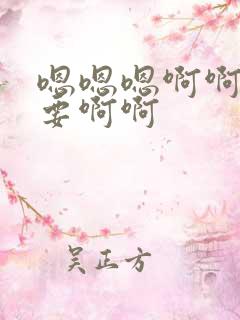 嗯嗯嗯啊啊
要啊啊
吴正方